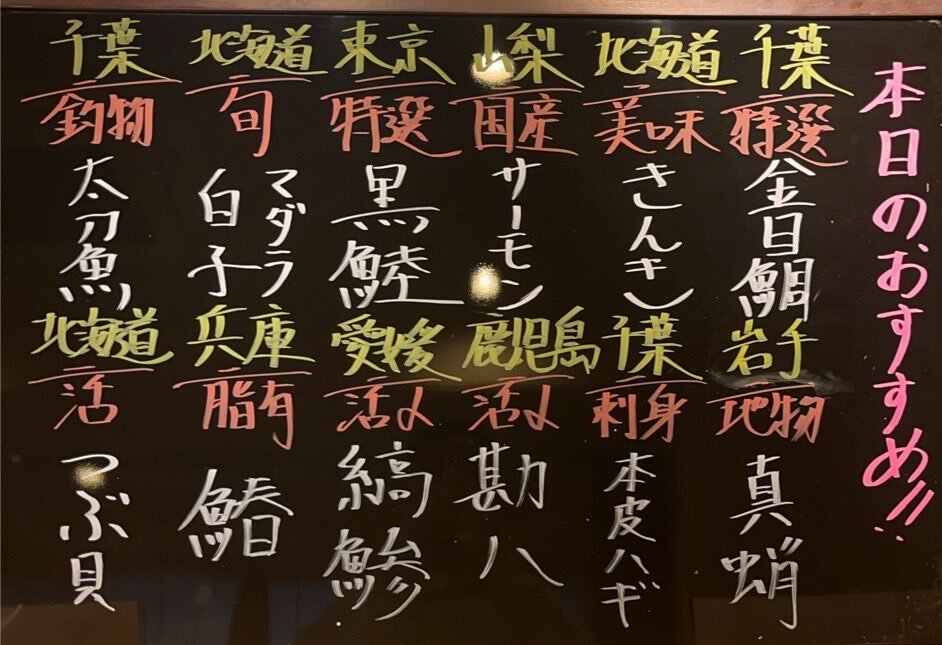 本日のおすすめ!!
千葉
特選
金目鯛
北海道
美味
きんき
山梨
国産
サーモン
東京
特選
黒鯥
北海道
旬
マダラ
白子
千葉
釣物
太刀魚
岩手
地物
真蛸
千葉
刺身
本皮ハギ
鹿児島
活〆
勘八
愛媛
活〆
縞鯵
兵庫
脂有
鰆
北海道
活
つぶ貝